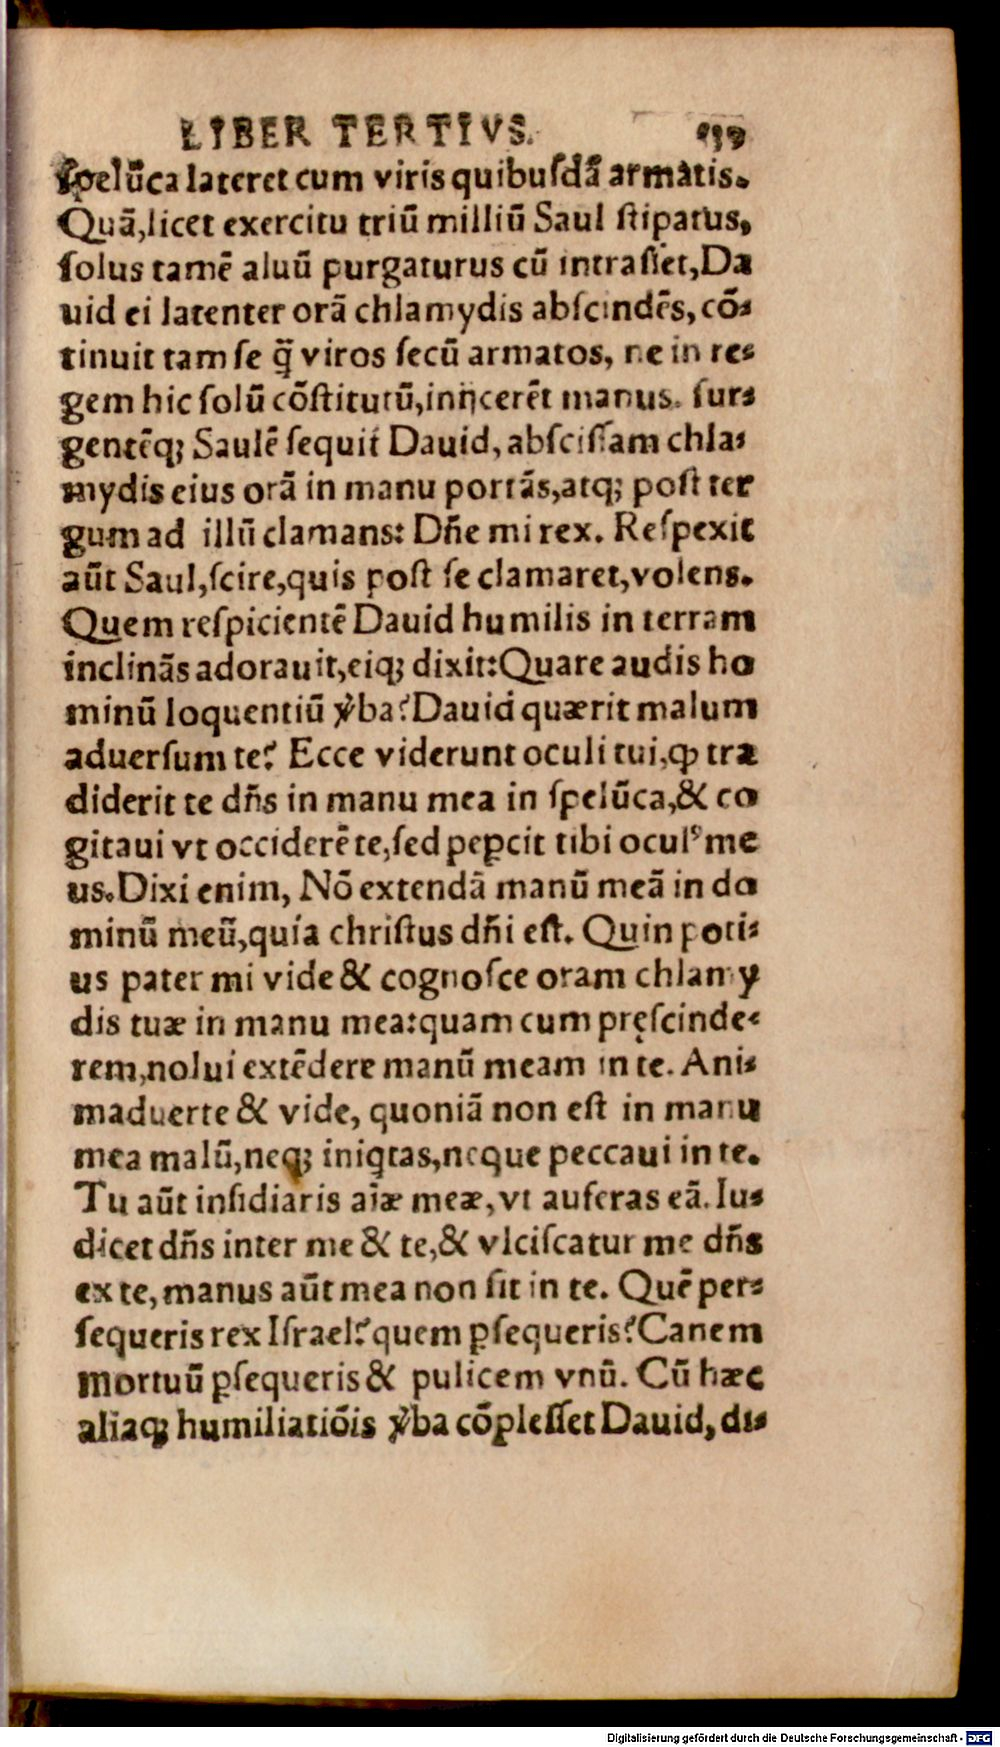 LIBER TERTIVS. 139
ſpelūca lateret cum viris quibuſdā armatis.
Quā, licet exercitu triū milliū Saul ſtipatus,
ſolus tamē aluū purgaturus cū intraſſet, Da
uid ei latenter orā chlamydis abſcindēs, cō⸗
tinuit tam ſe q̄̃ viros ſecū armatos, ne in re⸗
gem hic ſolū cōſtitutū, inijcerēt manus. ſur⸗
gentēq; Saulē ſequit Dauid, abſciſſam chla⸗
mydis eius orā in manu portās, atq; poſt ter
gum ad illū clamans: Dn̄e mi rex. Reſpexit
aūt Saul, ſcire, quis poſt ſe clamaret, volens.
Quem reſpicientē Dauid humilis in terram
inclinās adorauit, eiq; dixit: Quare audis ho
minū loquentiū v̓ba? Dauid quærit malum
aduerſum te? Ecce viderunt oculi tui, ꝙ tra
diderit te dn̄s in manu mea in ſpelūca, & co
gitaui vt occiderē te, ſed peꝑcit tibi oculꝰ me
us. Dixi enim, Nō extendā manū meā in do
minū meū, quia chriſtus dn̄i eſt. Quin poti⸗
us pater mi vide & cognoſce oram chlamy
dis tuæ in manu mea: quam cum pręſcinde⸗
rem, nolui extēdere manū meam in te. Ani⸗
maduerte & vide, quoniā non eſt in manu
mea malū, neq; iniqtas, neque peccaui in te.
Tu aūt inſidiaris aīæ meæ, vt auferas eā. Iu⸗
dicet dn̄s inter me & te, & vlciſcatur me dn̄s
ex te, manus aūt mea non ſit in te. Quē per⸗
ſequeris rex Iſrael? quem ꝑſequeris? Canem
mortuū ꝑſequeris & pulicem vnū. Cū hæc
aliaq; humiliatiōis v̓ba cōpleſſet Dauid, di⸗
Digitalisierung gefördert durch die Deutsche Forschungsgemeinschaft - DFG